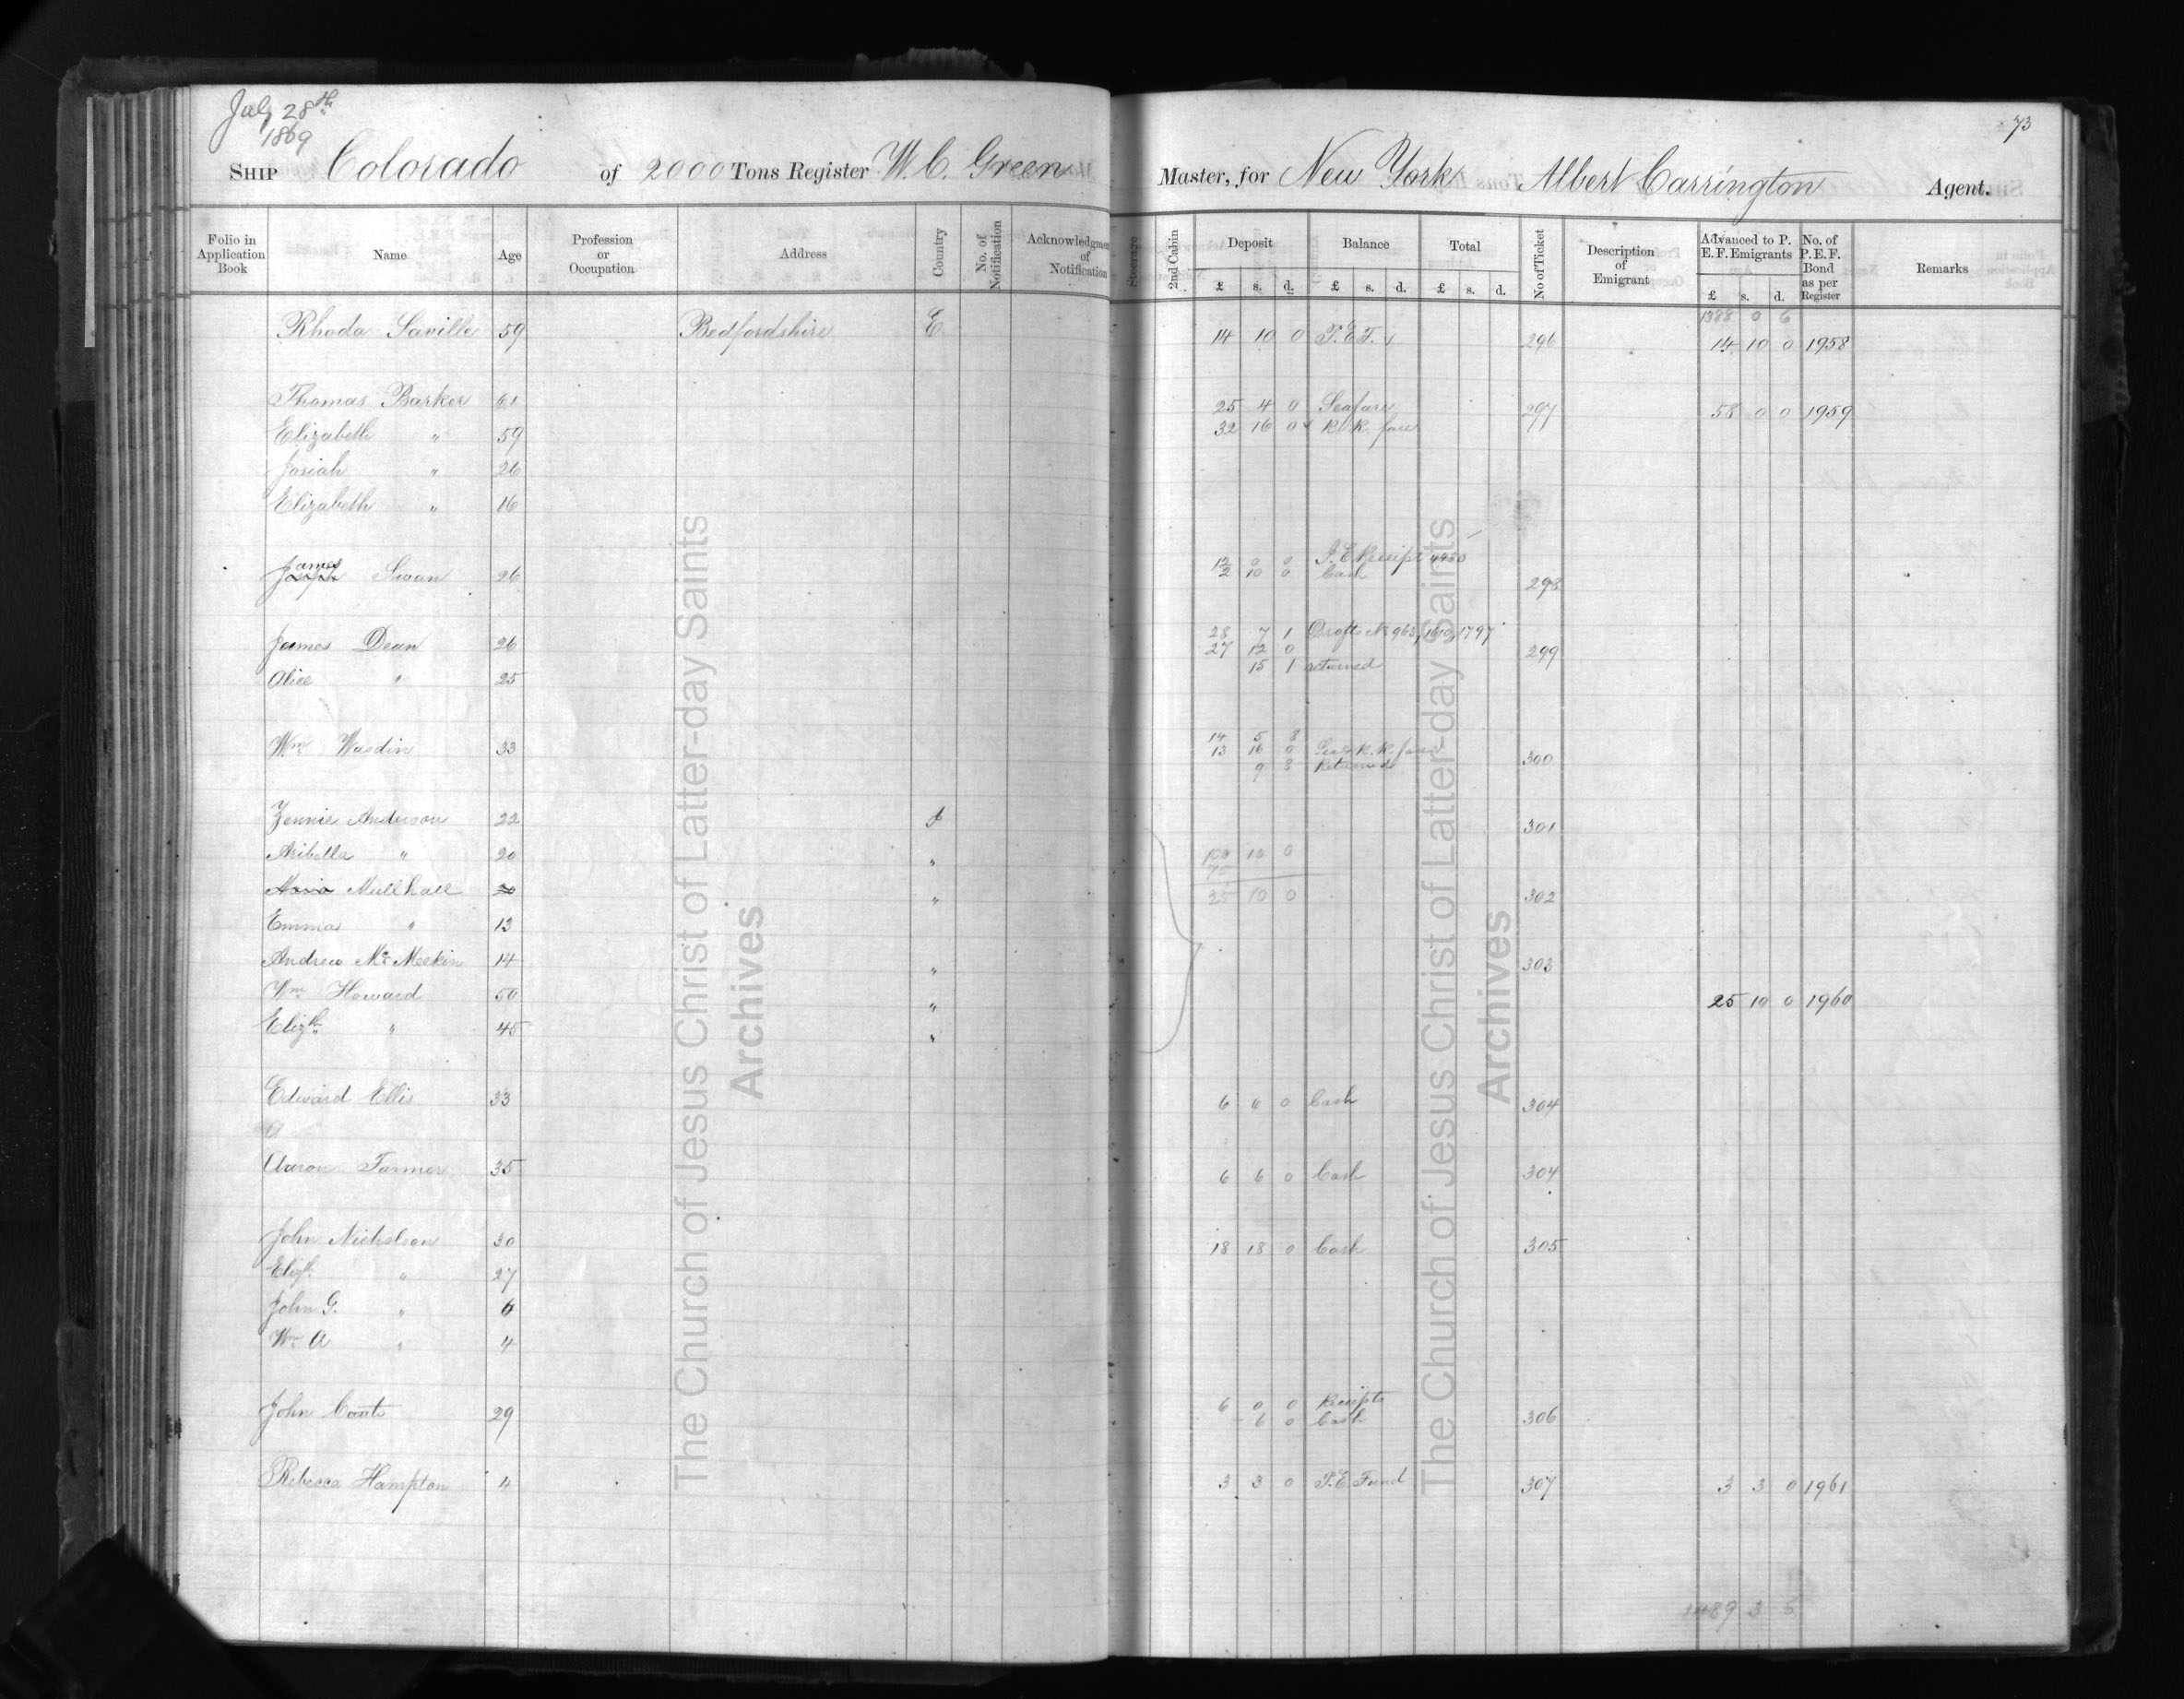 July 28th
1869
73
SHIP Colorado of 2000 Tons Register W. C. Green Master, for New York Albert Carrington Agent.
Folio in Application Book Name Age Profession or Occupation Address Country No. of Notification Acknowledgment of Notification Steerage 2nd Cabin Deposit Balance Total No of Ticket Description of Emigrant Advanced to P. E. F. Emigrants No. of P. E. F. Bond as per Register Remarks
£ s. d. £ s. d. £ s. d. £ s. d.
1388 0 6
Rhoda Saville 59 Bedfordshire E. 14 10 0 P. E. F. 296 14 10 0 1958
Thomas Barker 61 25 4 0 Seafare 297 58 0 0 1959
Elizabeth " 59 32 16 0 R. R. fare
Josiah " 26
Elizabeth " 16
James Swan 26 12 0 0 P. E. Receipt
2 10 0 Cash 298
James Dean 26 28 7 1 Drafts No 963, 1610, 1797
27 12 0 299
Alice " 25 15 1 returned
Wm Wasdin 33 14 5 8
13 16 0 Sea & R. R. fare
9 8 Returned 300
Zennie Anderson 22 I 301
Aribella " 20 " 100 10 0
75
Maria Mullhall 20 " 25 10 0 302
Emma " 13
Andrew Mc Meekin 14 " 303
Wm Howard 50 " 25 10 0 1960
Elizth " 45 "
Edward Ellis 33 6 6 0 Cash 304
a
Aaron Farmer 35 6 6 0 Cash 304
John Nicholson 30 18 18 0 Cash 305
Elizth " 27
John G. " 6
Wm A " 4
John 29 6 0 0 Receipts
6 0 Cash 306
Rebecca Hampton 4 3 3 0 P. E. Fund 307 3 3 0 1961
1489 3 6
The Church of Jesus Christ of Latter-day Saints
Archives
The Church of Jesus Christ of Latter-day Saints
Archives